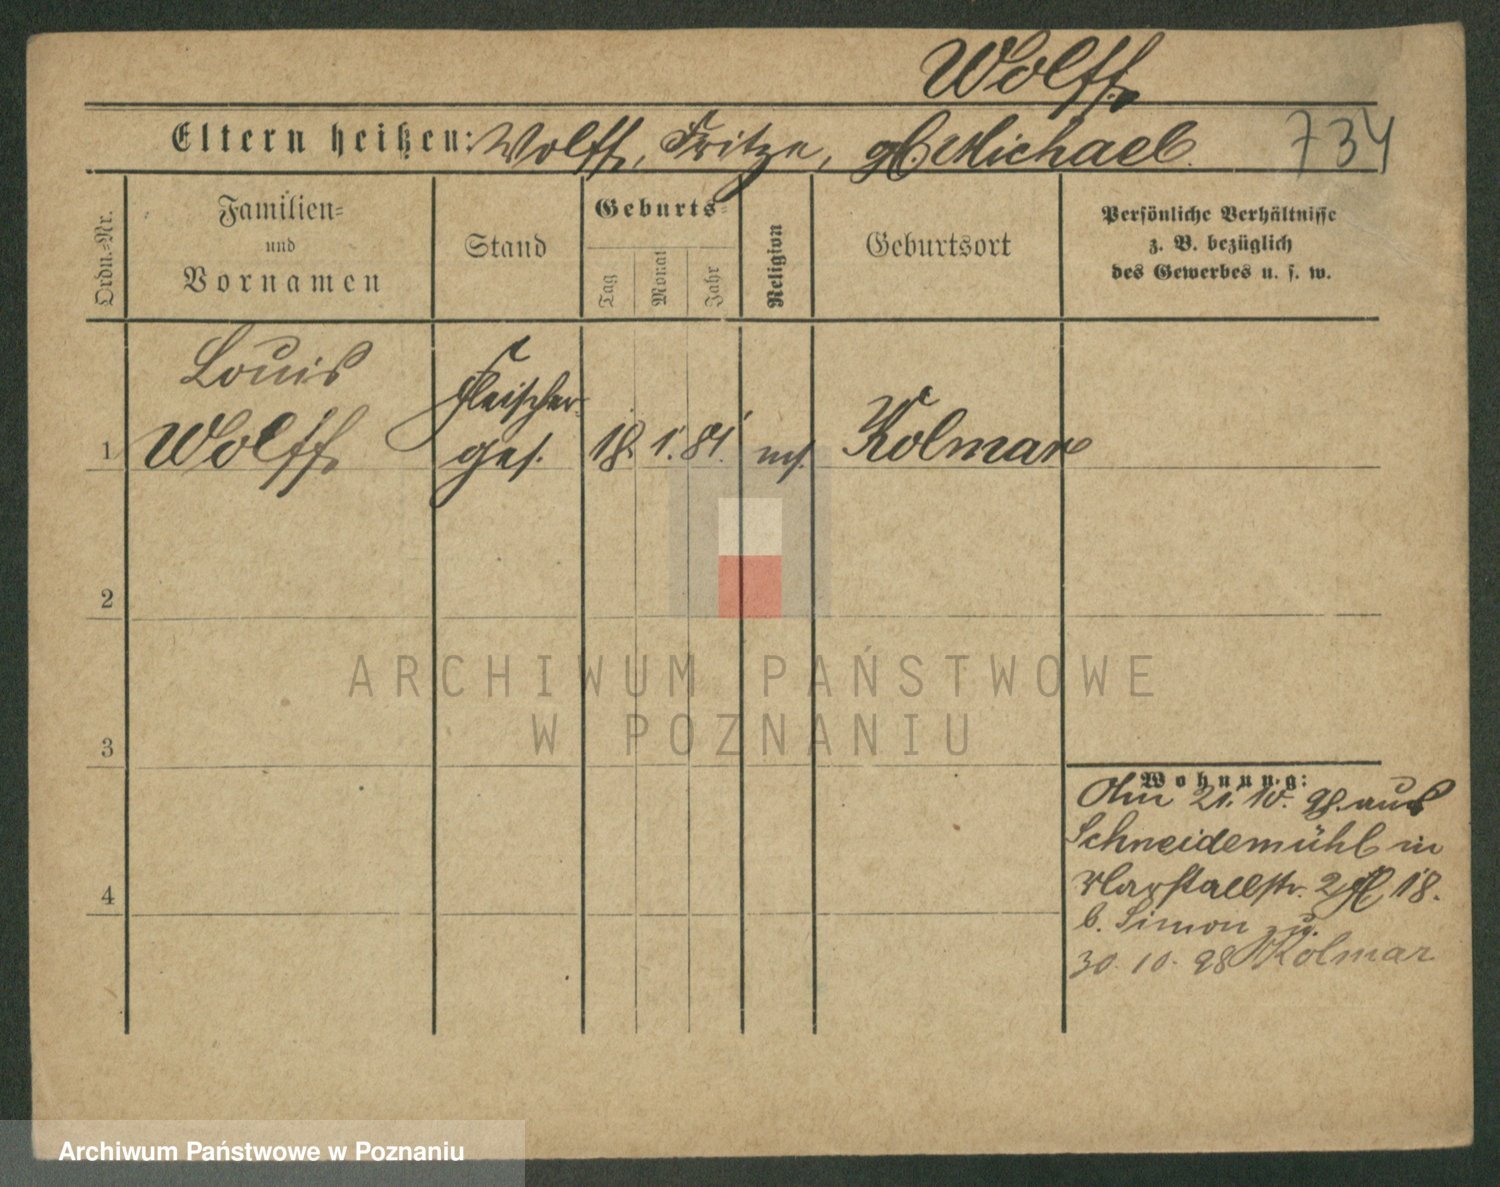 Wolff
Eltern heißen: Wolff, Fritze, gb. Michael.
734
Ordn.-Nr.
Familien-
und
Vornamen
Stand
Geburts-
Tag
Monat
Jahr
Religion
Geburtsort
Persönliche Verhältnisse
z. B. bezüglich
des Gewerbes u. s. w.
Louis
1 Wolff
Fleischer-
ges.
18. 1. 81.
Kolmar
2
3
4
ARCHIWUM PAŃSTWOWE
W POZNANIU
Wohnung:
21. 10. 98. aus
Schneidemühl in
18.
b. Simon zu.
30. 10. 98 Kolmar
Archiwum Państwowe w Poznaniu